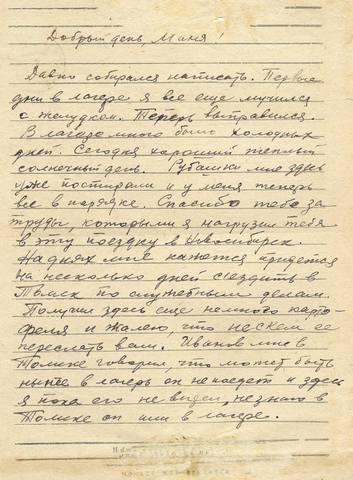 Добрый день, Маня!
Давно собирался написать. Первые
дни в лагере я все еще мучился
с желудком. Теперь выправился.
В лагере много было холодных
дней. Сегодня хороший теплый
солнечный день. Рубашки мне здесь
уже постирали и у меня теперь
все в порядке. Спасибо тебе за
труды, которыми я нагрузил тебя
в эту поездку в Новосибирск.
На днях мне кажется придется
на несколько дней съездить в
Томск по служебным делам.
Получил здесь еще немного карто-
феля и жалею, что не с кем ее
переслать вам. Иванов мне в
Томске говорил, что может быть
в лагерь он не поедет и здесь
я пока его не видел, не знаю в
Томске он или в лагере.